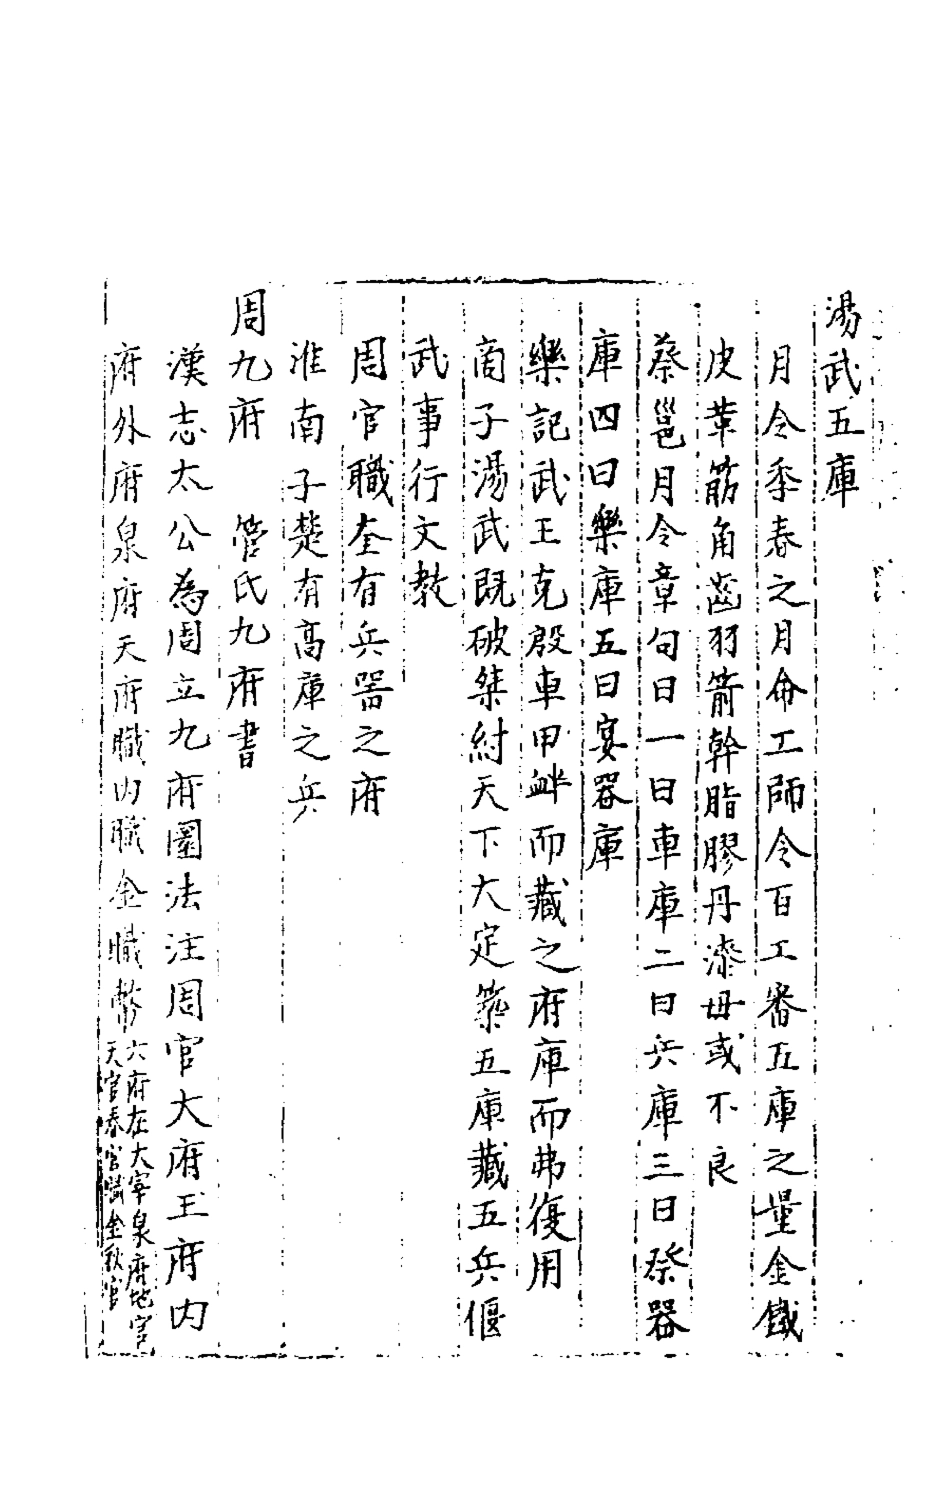 湯武五庫
月令季春之月命工師令百工審五庫之量金鐵
皮革筋角齒羽箭幹脂膠丹漆毋或不良
蔡邕月令章句曰一曰車庫二曰兵庫三曰祭器
庫四曰樂庫五曰宴器庫
樂記武王克殷車甲衅而藏之府庫而弗復用
商子湯武既破桀紂天下大定築五庫藏五兵偃
武事行文教
周官職奎有兵器之府
淮南子楚有高庫之兵
周九府　管氏九府書
漢志太公為周立九府圜法注周官大府王府内
府外府泉府天府職内職金職幣六府在大宰泉府地官
天官春官職金秋官